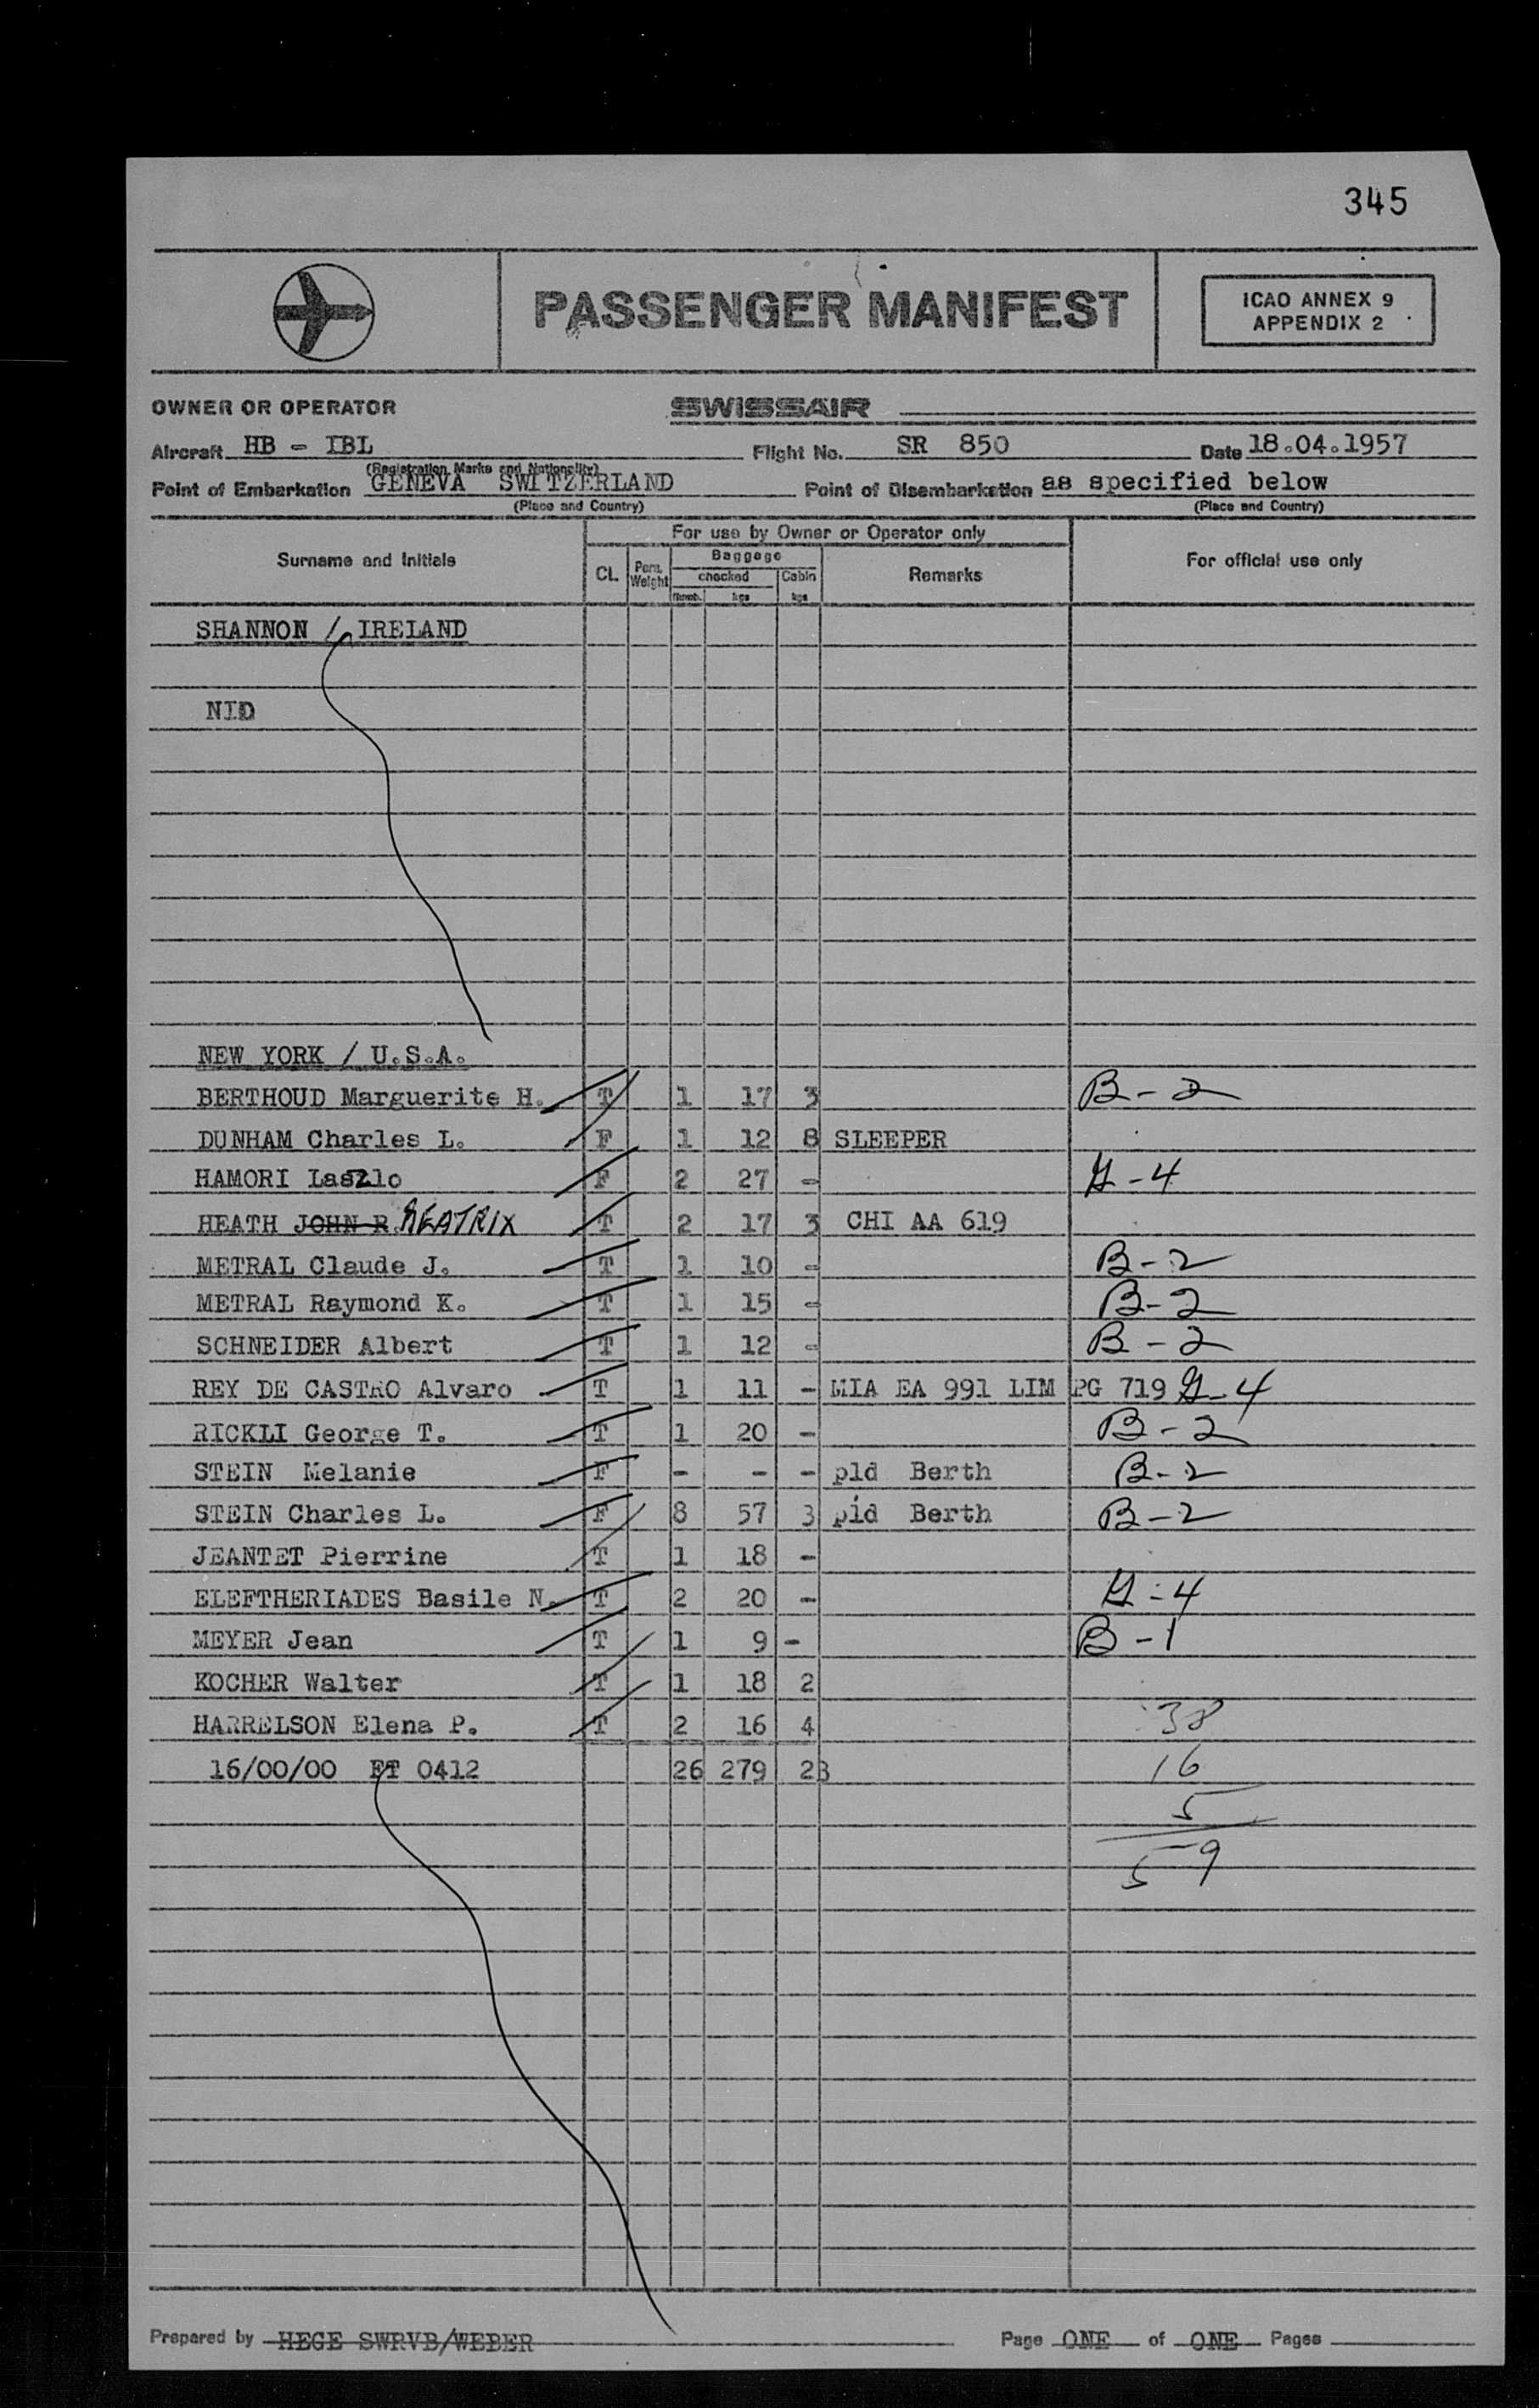 345
PASSENGER MANIFEST
ICAO ANNEX 9
APPENDIX 2
OWNER OR OPERATOR SWISSAIR
Aircraft HB - IBL Flight No. SR 850 Date 18.04.1957
(Registration Marks and Nationality)
Point of Embarkation GENEVA SWITZERLAND Point of Disembarkation as specified below
(Place and Country) (Place and Country)
For use by Owner or Operator only
Surname and Initials CL. Pers. Weight Baggage Remarks For official use only
checked Cabin
Numb. kgs kgs
SHANNON / IRELAND
NID
NEW YORK / U.S.A.
BERTHOUD Marguerite H. T 1 17 3 B-2
DUNHAM Charles L. F 1 12 8 SLEEPER
HAMORI Laszlo F 2 27 - G-4
HEATH JOHN R BEATRIX T 2 17 3 CHI AA 619
METRAL Claude J. T 1 10 - B-2
METRAL Raymond K. T 1 15 - B-2
SCHNEIDER Albert T 1 12 - B-2
REY DE CASTRO Alvaro T 1 11 - MIA EA 991 LIM PG 719 G-4
RICKLI George T. T 1 20 - B-2
STEIN Melanie F - - - pld Berth B-2
STEIN Charles L. F 8 57 3 pid Berth B-2
JEANTET Pierrine T 1 18 -
ELEFTHERIADES Basile N. T 2 20 - G-4
MEYER Jean T 1 9 - B-1
KOCHER Walter T 1 18 2
HARRELSON Elena P. T 2 16 4 38
16/00/00 FT 0412 26 279 23 16
5
59
Prepared by HEGE SWRVB/WEBER Page ONE of ONE Pages